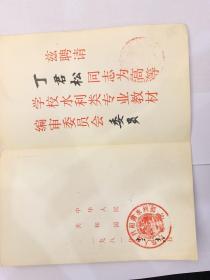 兹聘请
丁君松同志为高等
学校水利类专业教材
编审委员会委员
中华人民
共和国
一九八